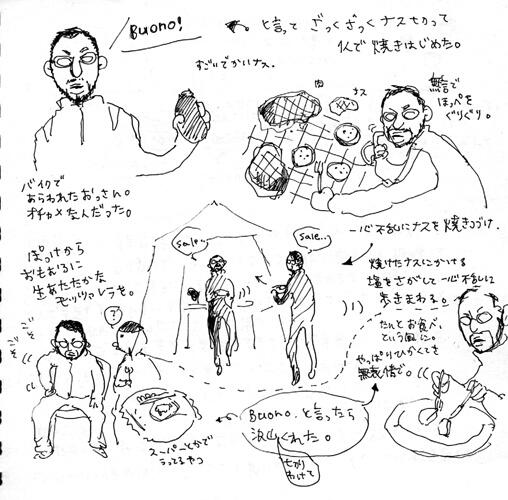 Buono!
と言って ざっくざっくナスを切って
1人で焼きはじめた。
すごいでかいナス。
肉
ナス
無言で
ほっぺを
ぐりぐり。
バイクで
あらわれたおっさん。
オチャメな人だった。
一心不乱にナスを焼きつづけ、
sale...
sale...
焼けたナスにかける
塩をさがして一心不乱に
歩きまわる。
ぽっけから
おもむろに
生あたたかな
モッツァレラを。
ごそ
ごそ
?
たんとお食べ、
という風に。
やっぱりひかくてき
無表情で。
スーパーとかで
うってるやつ
Buono. と言ったら
沢山くれた。
わけて